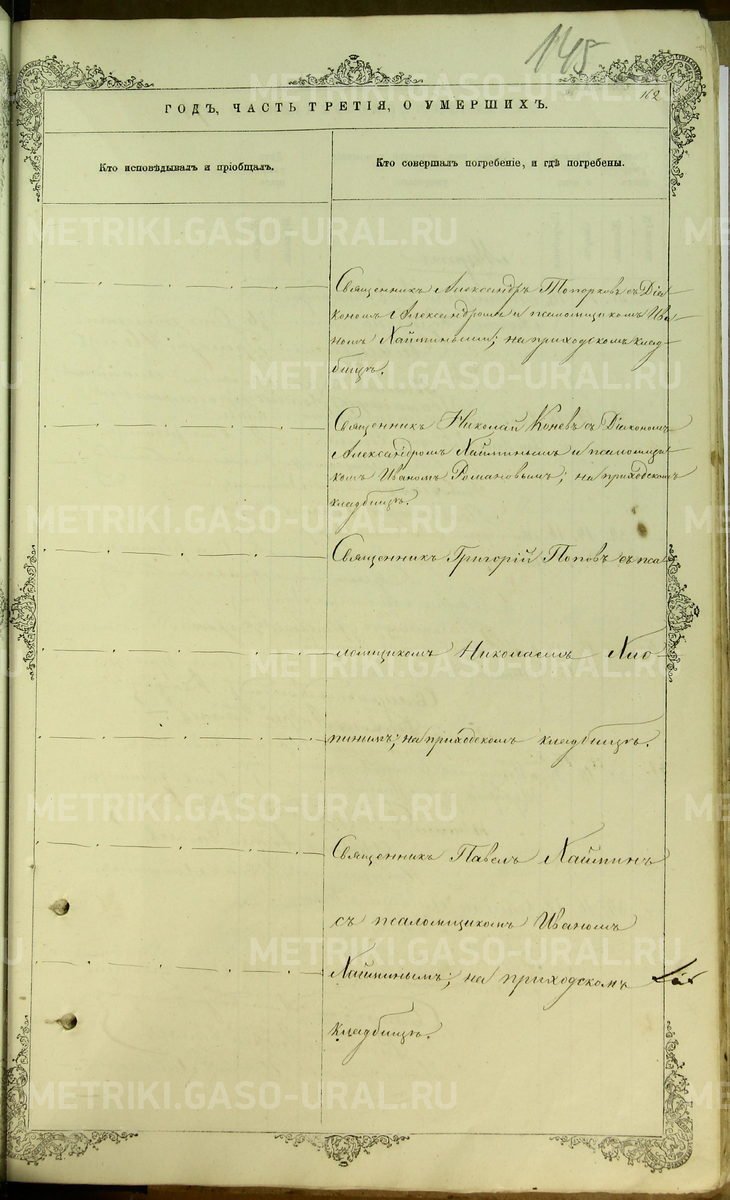 145
162
ГОДЪ, ЧАСТЬ ТРЕТІЯ, О УМЕРШИХЪ.
Кто исповѣдывалъ и пріобщалъ.
Кто совершалъ погребеніе, и гдѣ погребены.
Священникъ Александръ Топорковъ съ Діа-
кономъ Александромъ и псаломщикомъ Ива-
номъ Наймиными; на приходскомъ клад-
бищѣ.
Священникъ Николай Коневъ съ Діакономъ
Александромъ Найминымъ и псаломщи-
комъ Иваномъ Романовымъ; на приходскомъ
кладбищѣ.
Священникъ Григорій Поповъ съ пса-
ломщикомъ Николаемъ
на приходскомъ кладбищѣ.
Священникъ Павелъ Найминъ
съ псаломщикомъ Иваномъ
Найминымъ; на приходскомъ
кладбищѣ.
METRIKI.GASO-URAL.RU